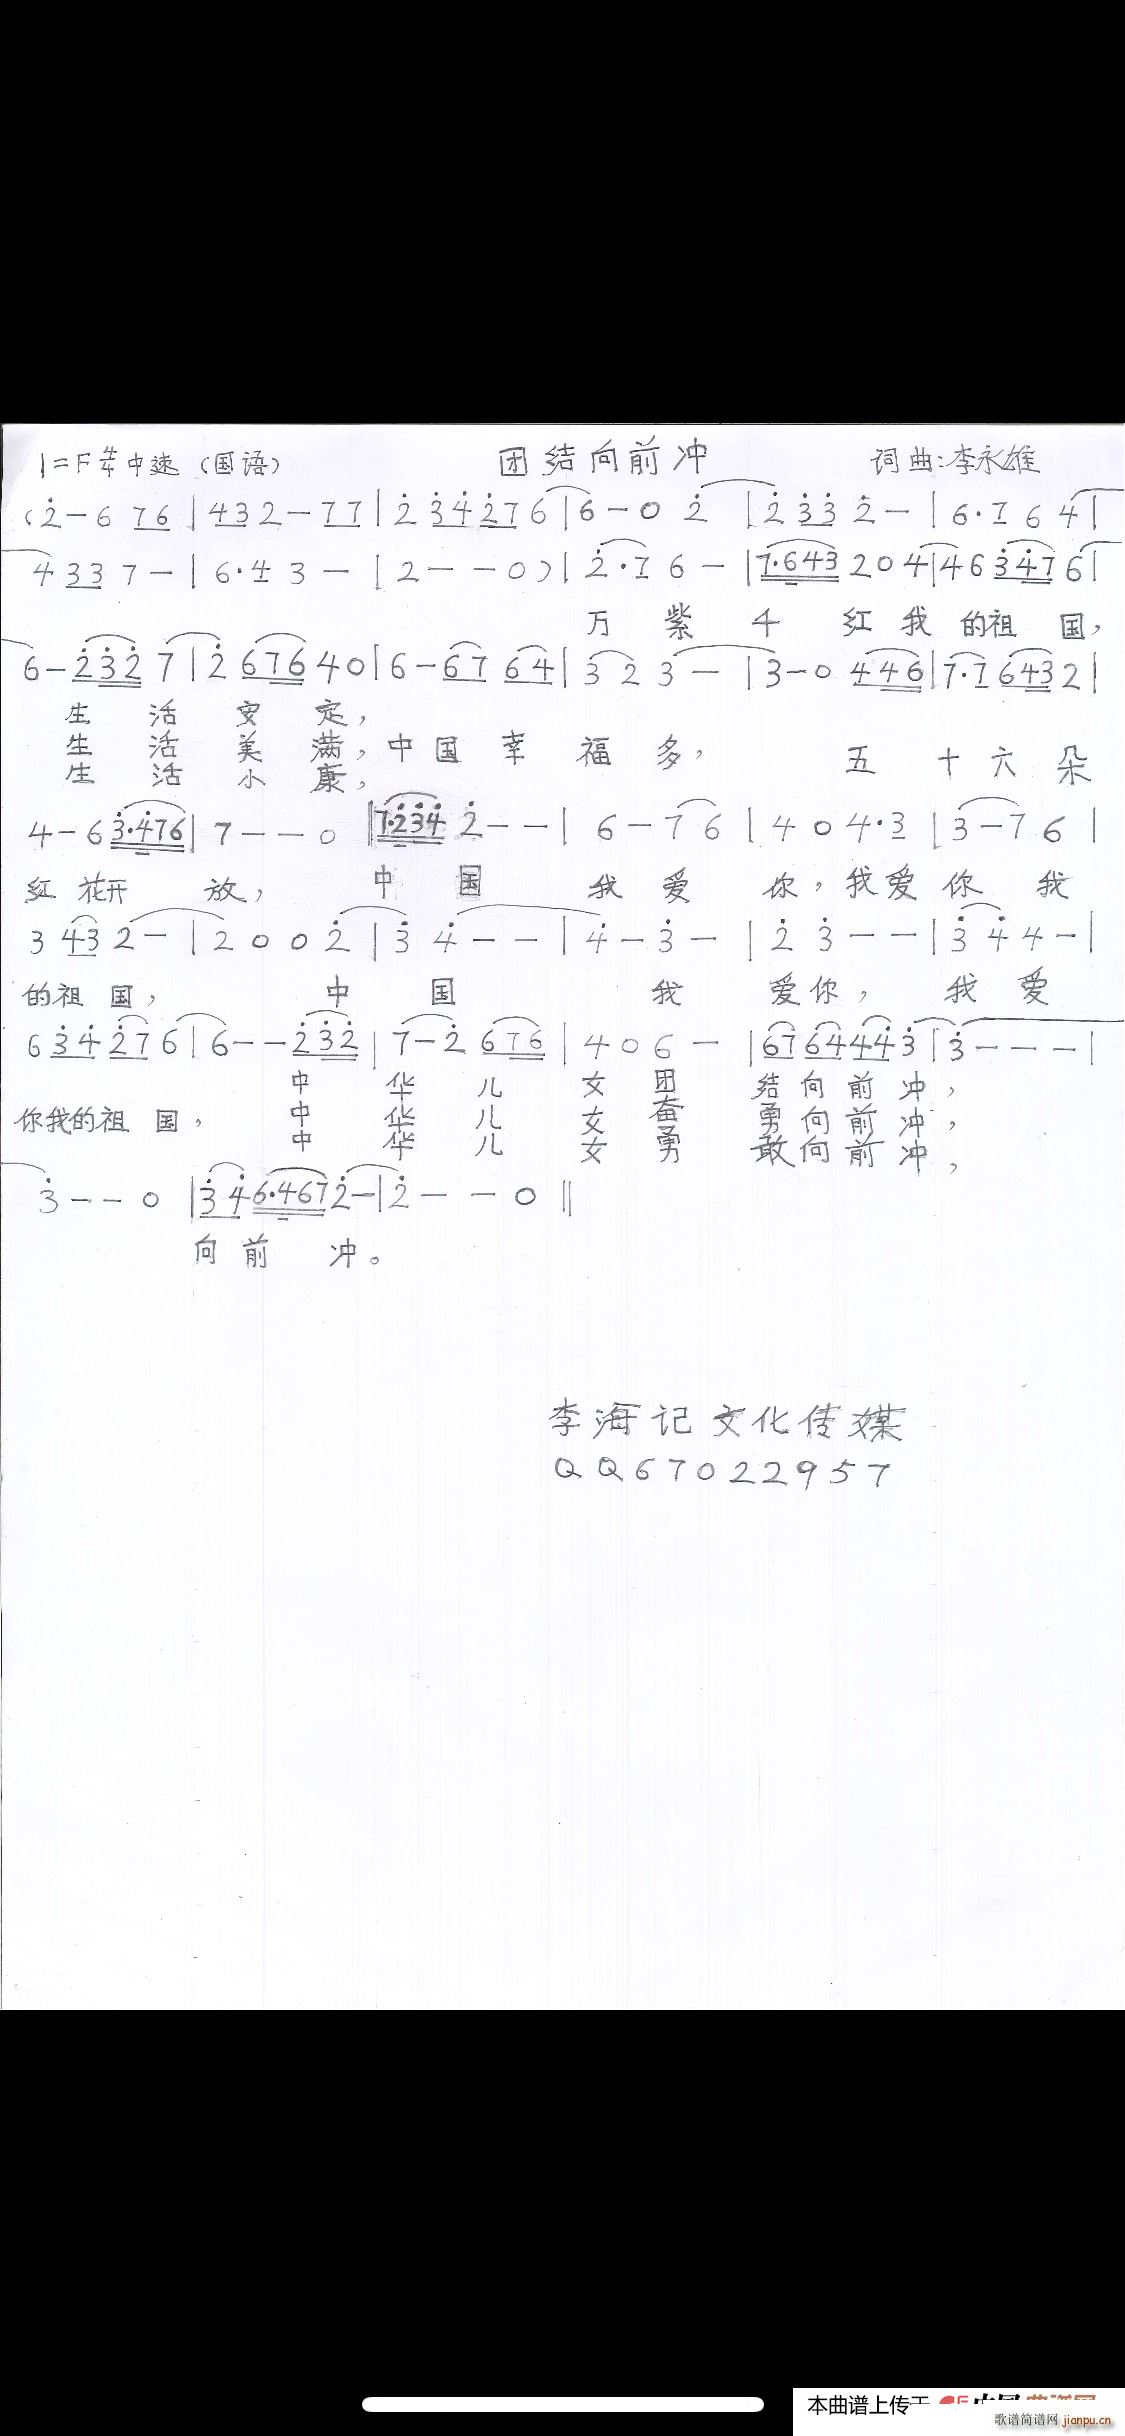 1=F 4/4 中速 (国语) 团结向前冲 词曲:李永雄
(2̇ - 6 7 6 | 4 3 2 - 7 7 | 2̇ 3̇ 4̇ 2̇ 7 6 | 6 - 0 2̇ | 2̇ 3̇ 3̇ 2̇ - | 6 · 7 6 4 |
4 3 3 7 - | 6 · 4 3 - | 2 - - 0 ) | 2̇ · 7 6 - | 7 · 6 4 3 2 0 4 | 4 6 3̇ 4̇ 7 6 |
万 紫 千 红 我 的 祖 国,
6 - 2̇ 3̇ 2̇ 7 | 2̇ 6 7 6 4 0 | 6 - 6 7 6 4 | 3 2 3 - | 3 - 0 4 4 6 | 7 · 7 6 4 3 2 |
生 活 安 定,
生 活 美 满, 中 国 幸 福 多, 五 十 六 朵
生 活 小 康,
4 - 6 3̇ · 4̇ 7 6 | 7 - - 0 ‖ 7 · 2̇ 3̇ 4̇ 2̇ - - | 6 - 7 6 | 4 0 4 · 3 | 3 - 7 6 |
红 花 开 放, 中 国 我 爱 你, 我 爱 你 我
3 4 3 2 - | 2 0 0 2̇ | 3̇ 4̇ - - | 4̇ - 3̇ - | 2̇ 3̇ - - | 3̇ 4̇ 4 - |
的 祖 国, 中 国 我 爱 你, 我 爱
6 3̇ 4̇ 2̇ 7 6 | 6 - - 2̇ 3̇ 2̇ | 7 - 2̇ 6 7 6 | 4 0 6 - | 6 7 6 4 4 4̇ 3̇ | 3̇ - - - |
中 华 儿 女 团 结 向 前 冲,
你 我 的 祖 国, 中 华 儿 女 奋 勇 向 前 冲,
中 华 儿 女 勇 敢 向 前 冲,
3̇ - - 0 | 3̇ 4̇ 6 · 4 6 7 2̇ - | 2̇ - - 0 ‖
向 前 冲。
李海记文化传媒
QQ67022957
本曲谱上传于
歌谱简谱网 jianpu.cn